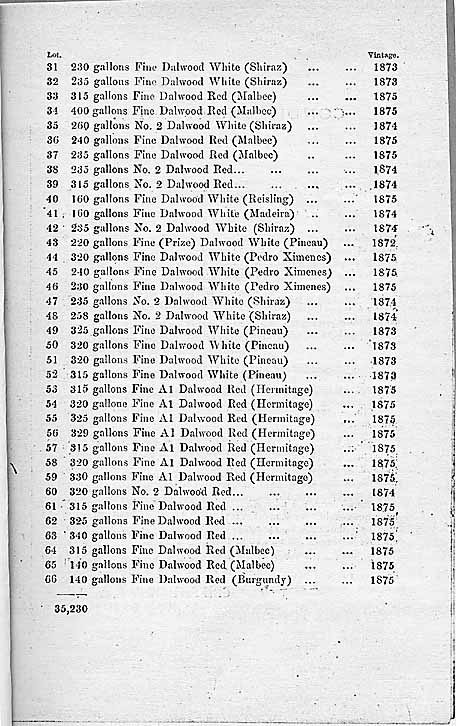 Lot. Vintage.
31 230 gallons Fine Dalwood White (Shiraz) ... ... 1873
32 235 gallons Fine Dalwood White (Shiraz) ... ... 1873
33 315 gallons Fine Dalwood Red (Malbec) ... ... 1875
34 400 gallons Fine Dalwood Red (Malbec) ... ... 1875
35 260 gallons No. 2 Dalwood White (Shiraz) ... ... 1874
36 240 gallons Fine Dalwood Red (Malbec) ... ... 1875
37 235 gallons Fine Dalwood Red (Malbec) .. ... 1875
38 235 gallons No. 2 Dalwood Red... ... ... ... 1874
39 315 gallons No. 2 Dalwood Red... ... ... ... 1874
40 160 gallons Fine Dalwood White (Reisling) ... ... 1875
41 160 gallons Fine Dalwood White (Madeira) .. ... 1874
42 235 gallons No. 2 Dalwood White (Shiraz) ... ... 1874
43 220 gallons Fine (Prize) Dalwood White (Pineau) ... 1872
44 320 gallons Fine Dalwood White (Pedro Ximenes) ... 1875
45 240 gallons Fine Dalwood White (Pedro Ximenes) ... 1875
46 230 gallons Fine Dalwood White (Pedro Ximenes) ... 1875
47 235 gallons No. 2 Dalwood White (Shiraz) ... ... 1874
48 258 gallons No. 2 Dalwood White (Shiraz) ... ... 1874
49 325 gallons Fine Dalwood White (Pineau) ... ... 1873
50 320 gallons Fine Dalwood White (Pineau) ... ... 1873
51 320 gallons Fine Dalwood White (Pineau) ... ... 1873
52 315 gallons Fine Dalwood White (Pineau) ... ... 1873
53 315 gallons Fine A1 Dalwood Red (Hermitage) ... 1875
54 320 gallons Fine A1 Dalwood Red (Hermitage) ... 1875
55 325 gallons Fine A1 Dalwood Red (Hermitage) ... 1875
56 329 gallons Fine A1 Dalwood Red (Hermitage) ... 1875
57 315 gallons Fine A1 Dalwood Red (Hermitage) ... 1875
58 320 gallons Fine A1 Dalwood Red (Hermitage) ... 1875
59 330 gallons Fine A1 Dalwood Red (Hermitage) ... 1875
60 320 gallons No. 2 Dalwood Red... ... ... ... 1874
61 315 gallons Fine Dalwood Red ... ... ... ... 1875
62 325 gallons Fine Dalwood Red ... ... ... ... 1875
63 340 gallons Fine Dalwood Red ... ... ... ... 1875
64 315 gallons Fine Dalwood Red (Malbec) ... ... 1875
65 140 gallons Fine Dalwood Red (Malbec) ... ... 1875
66 140 gallons Fine Dalwood Red (Burgundy) ... ... 1875
35,230